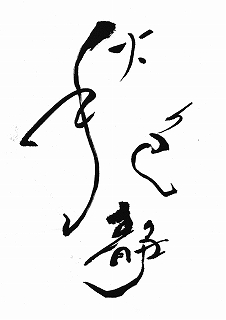 秋色静